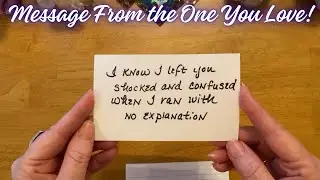 Message From the One You Love!
I know I left you
shocked and confused
when I ran with
no explanation